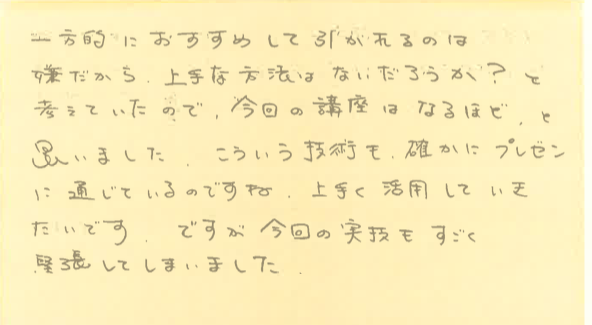 一方的におすすめして引かれるのは
嫌だから、上手な方法はないだろうか？と
考えていたので、今回の講座はなるほど、と
思いました。こういう技術も、確かにプレゼン
に通じているのですね。上手く活用していき
たいです。ですが今回の実技もすごく
緊張してしまいました。